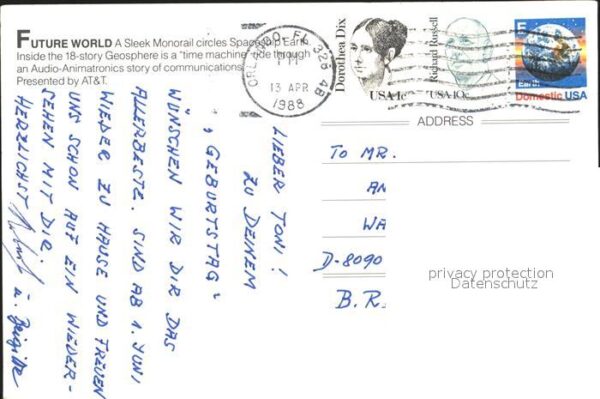 FUTURE WORLD A Sleek Monorail circles Spaceship Earth.
Inside the 18-story Geosphere is a "time machine" ride through
an Audio-Animatronics story of communications.
Presented by AT&T.
ORLANDO, FL 328 4B
13 APR
1988
Dorothea Dix
USA 1c
Richard Russell
USA 10c
E
Earth
Domestic USA
ADDRESS
TO MR.
AN
WA
D-8090
B.R.
LIEBER TONI!
ZU DEINEM
„GEBURTSTAG“
WÜNSCHEN WIR DIR DAS
ALLERBESTE. SIND AB 1. JUNI
WIEDER ZU HAUSE UND FREUEN
UNS SCHON AUF EIN WIEDER-
SEHEN MIT DIR.
HERZLICHST
privacy protection
Datenschutz